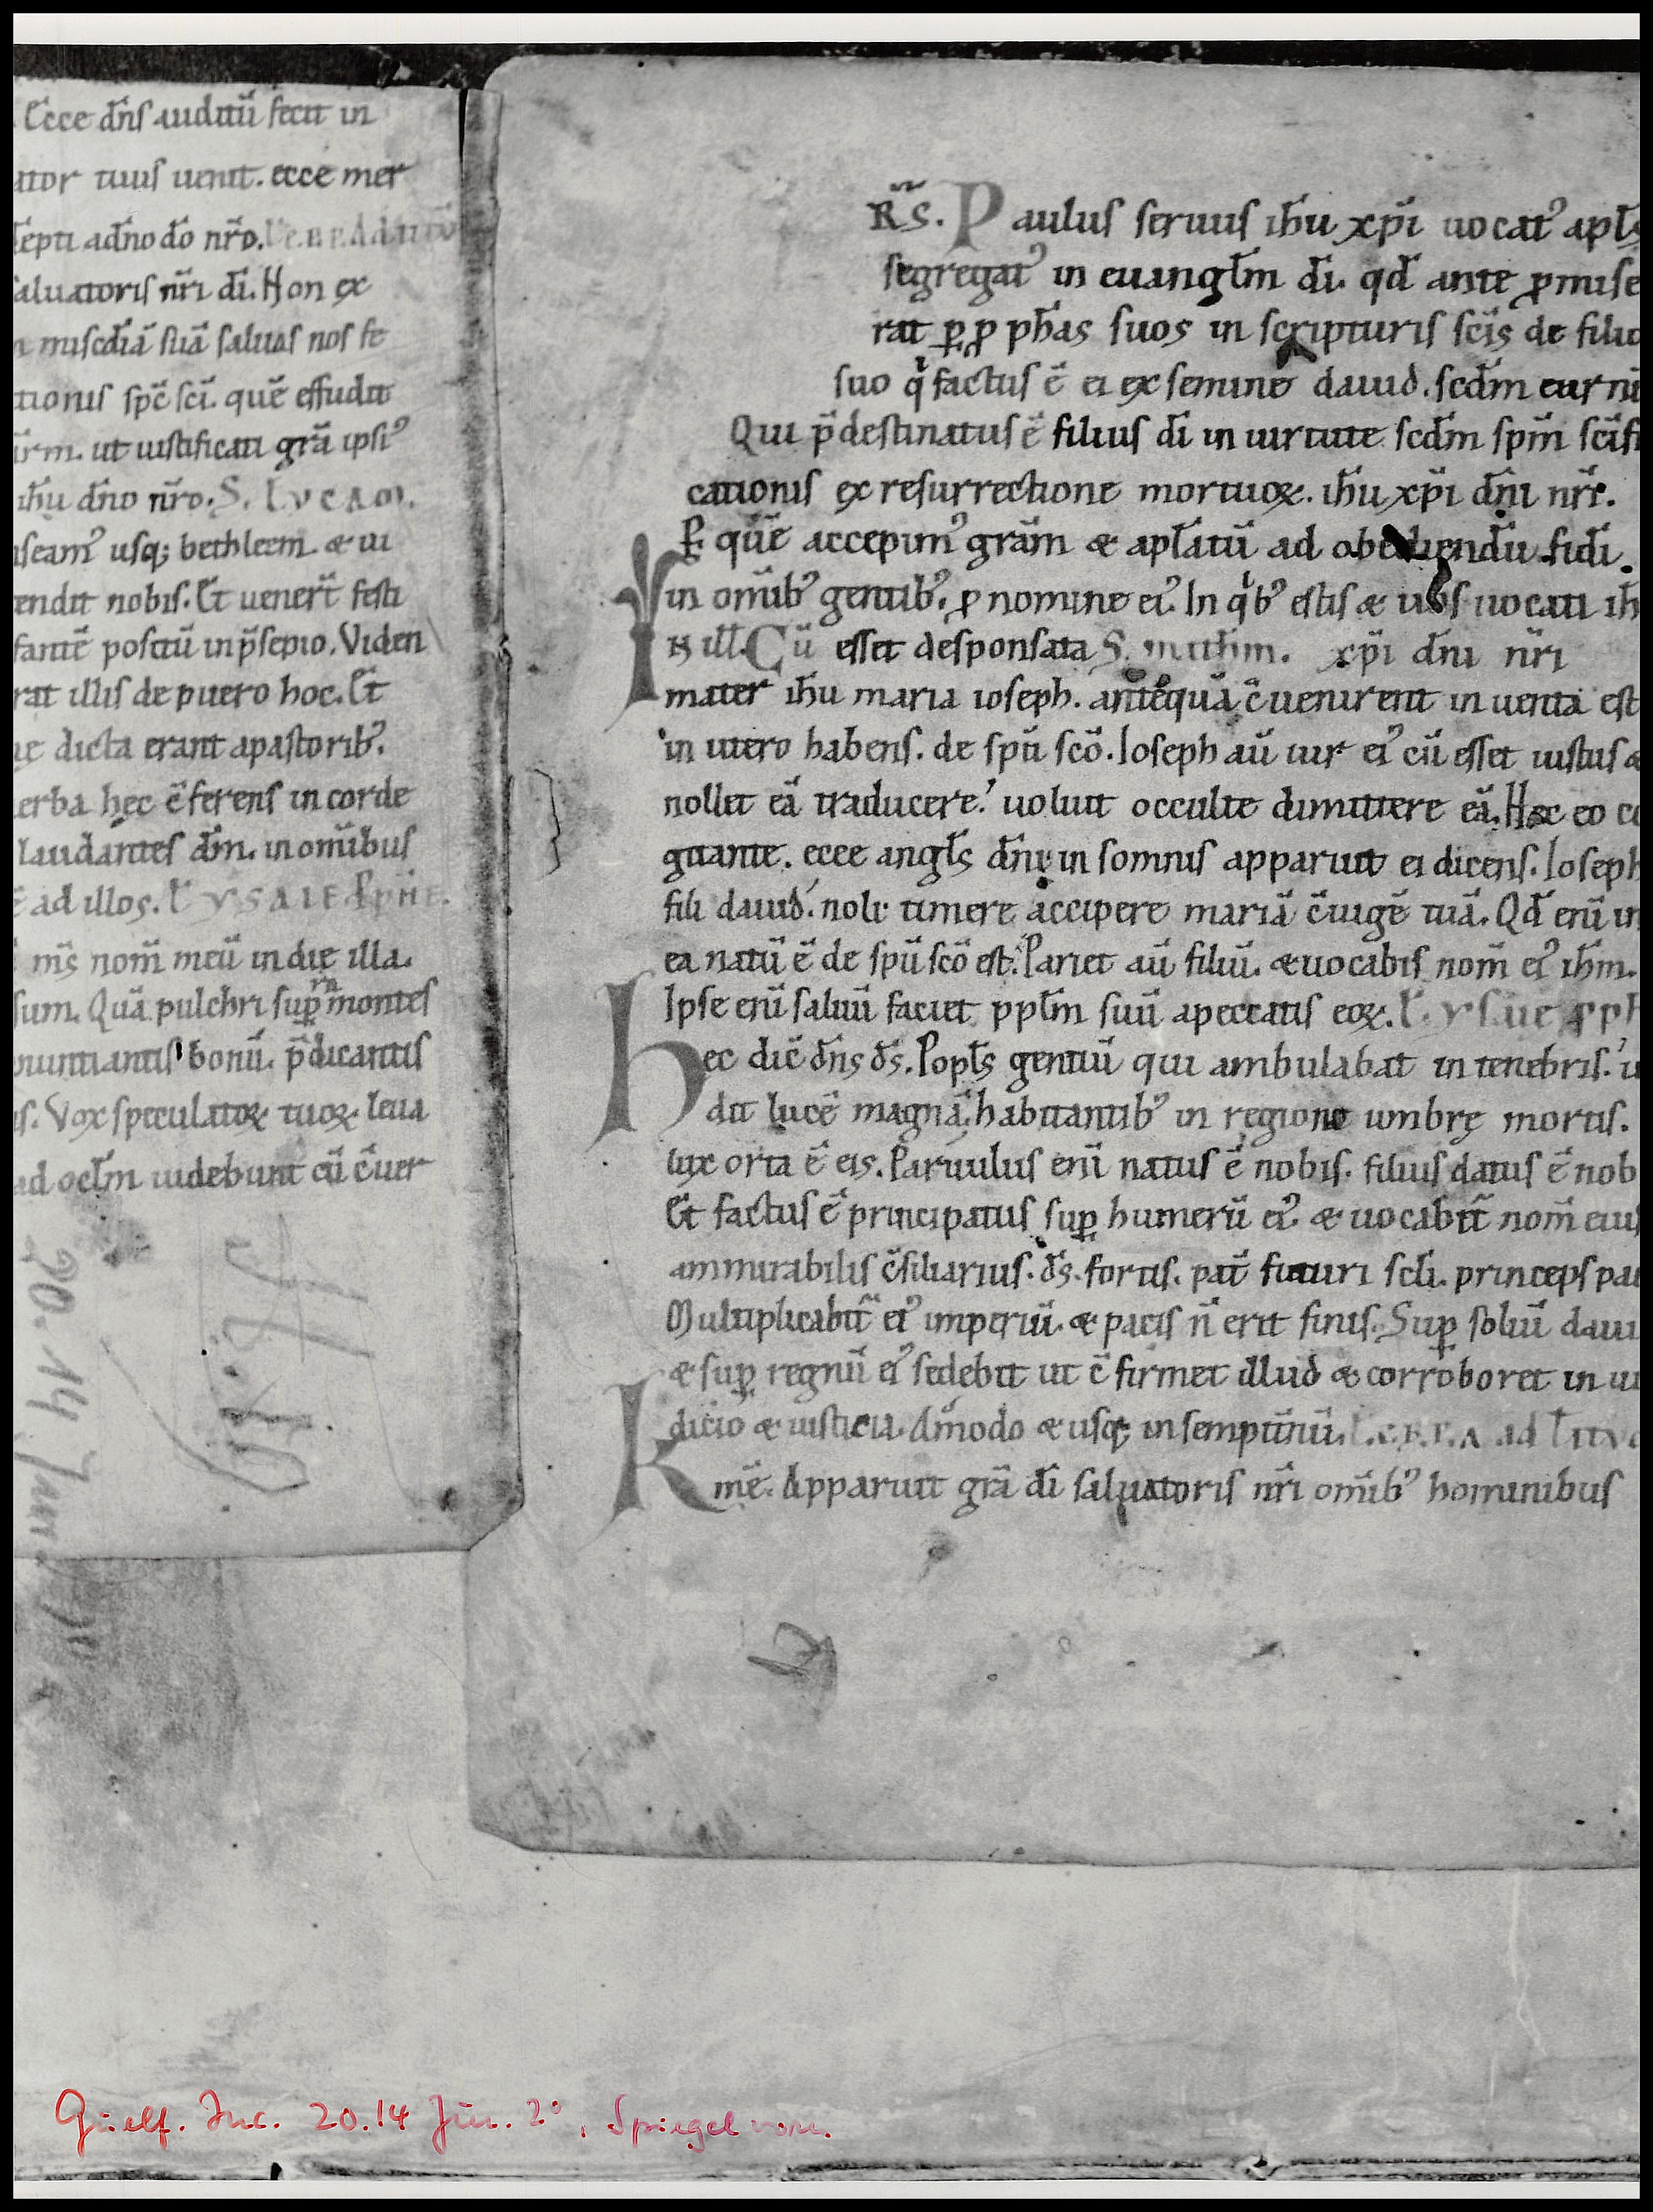 Ecce dn̄s auditū fecit in
ator tuus uenit. ecce mer
cepti adn̄o dō nr̄o.
saluatoris nr̄i dī. Non ex
misc̄diā suā saluos nos fe
tionis spc̄ scī. quē effudit
ūrm. ut iustificati gr̄a ipsiꝰ
ih̄u dn̄o nr̄o. S. LVCAM.
nseamꝰ usq; bethleem. & ui
tendit nobis. Et uener̄t festi
fantē positū inp̄sepio. Viden
rat illis de puero hoc. Et
dicta erant apastoribꝰ.
uerba hec c̄ferens in corde
laudantes dm̄. in om̄ibus
ē ad illos. L YSAIE PPHE.
m̄s nom̄ meū in die illa.
sum. Quā pulchri suꝑ montes
nuntiantis bonū. p̄dicantis
is. Vox speculatoꝝ tuoꝝ leua
ad ocl̄m uidebunt cū c̄uer
20. 14 Jur.
R̄S. Paulus seruus ih̄u xp̄i uocatꝰ apl̄s
segregatꝰ in euangl̄m dī. qd̄ ante ꝓmise
rat ꝑ ꝓph̄as suos in scripturis scīs de filio
suo q' factus ē ei ex semine dauid. scd̄m carnē
Qui p̄destinatus ē filius dī in uirtute scd̄m spm̄ scīfi
cationis ex resurrectione mortuoꝝ. ih̄u xp̄i dn̄i nr̄i.
P quē accepimꝰ gr̄am & apl̄atū ad obediendū fidi.
in om̄ibꝰ gentibꝰ. ꝓ nomine eiꝰ. In q'bꝰ estis & uos uocati ih̄
IN ill̄. Cū esset desponsata S. math̄m. xp̄i dn̄i nr̄i
mater ih̄u maria ioseph. antequā c̄uenirent inuenta est
in utero habens. de spū scō. Ioseph aū uir eiꝰ cū esset iustus &
nollet eā traducere. uoluit occulte dimittere eā. Hec eo co
gitante. ecce angl̄s dn̄i in somnis apparuit ei dicens. Ioseph
fili dauid. noli timere accipere mariā c̄iugē tuā. Qd̄ enī in
ea natū ē de spū scō est. Pariet aū filiū. & uocabis nom̄ eiꝰ ih̄m.
Ipse enī saluū faciet ppl̄m suū apeccatis eoꝝ. L. ysaie pph
Hec dic̄ dn̄s ds̄. Popl̄s gentiū qui ambulabat in tenebris. ui
dit lucē magnā. habitantibꝰ in regione umbrę mortis.
lux orta ē eis. Paruulus enī natus ē nobis. filius datus ē nob
Et factus ē principatus suꝑ humerū eiꝰ. & uocabit̄ nom̄ eius
ammirabilis c̄siliarius. ds̄. fortis. pat̄ futuri scl̄i. princeps pac
Multiplicabit̄ eiꝰ imperiū. & pacis n̄ erit finis. Suꝑ soliū daui
& suꝑ regnū eiꝰ sedebit ut c̄firmet illud & corroboret in iu
dicio & iusticia. Amodo & usq; in sempit̄nū.
Kmē. Apparuit gr̄a dī saluatoris nr̄i om̄ibꝰ hominibus
Guelf. Inc. 20.14 Jur. 2°, Spiegel vorn.